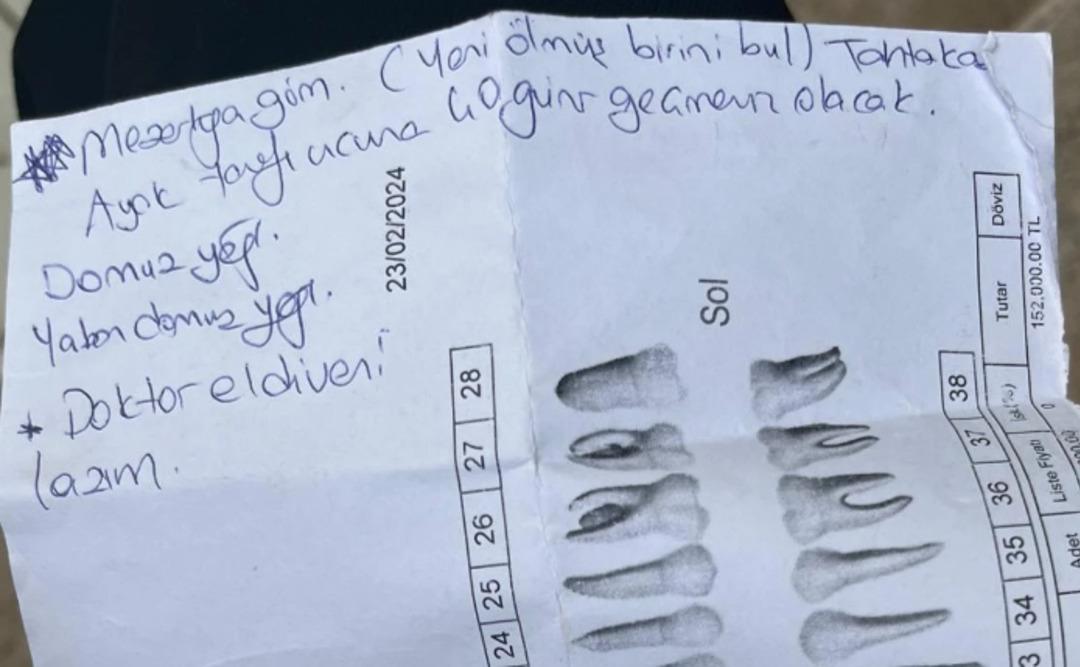 Mezarlığa göm. (Yeni ölmüş birini bul) Tahtaka
Ayak tarafı ucuna 40 günü geçmemiş olacak.
Domuz yağı.
Yaban domuz yağı.
* Doktor eldiveni
lazım.
23/02/2024
Sol
28
27
26
25
24
38
37
36
35
34
3
Tutar
Döviz
152.000.00 TL
Liste Fiyatı
0
Adet